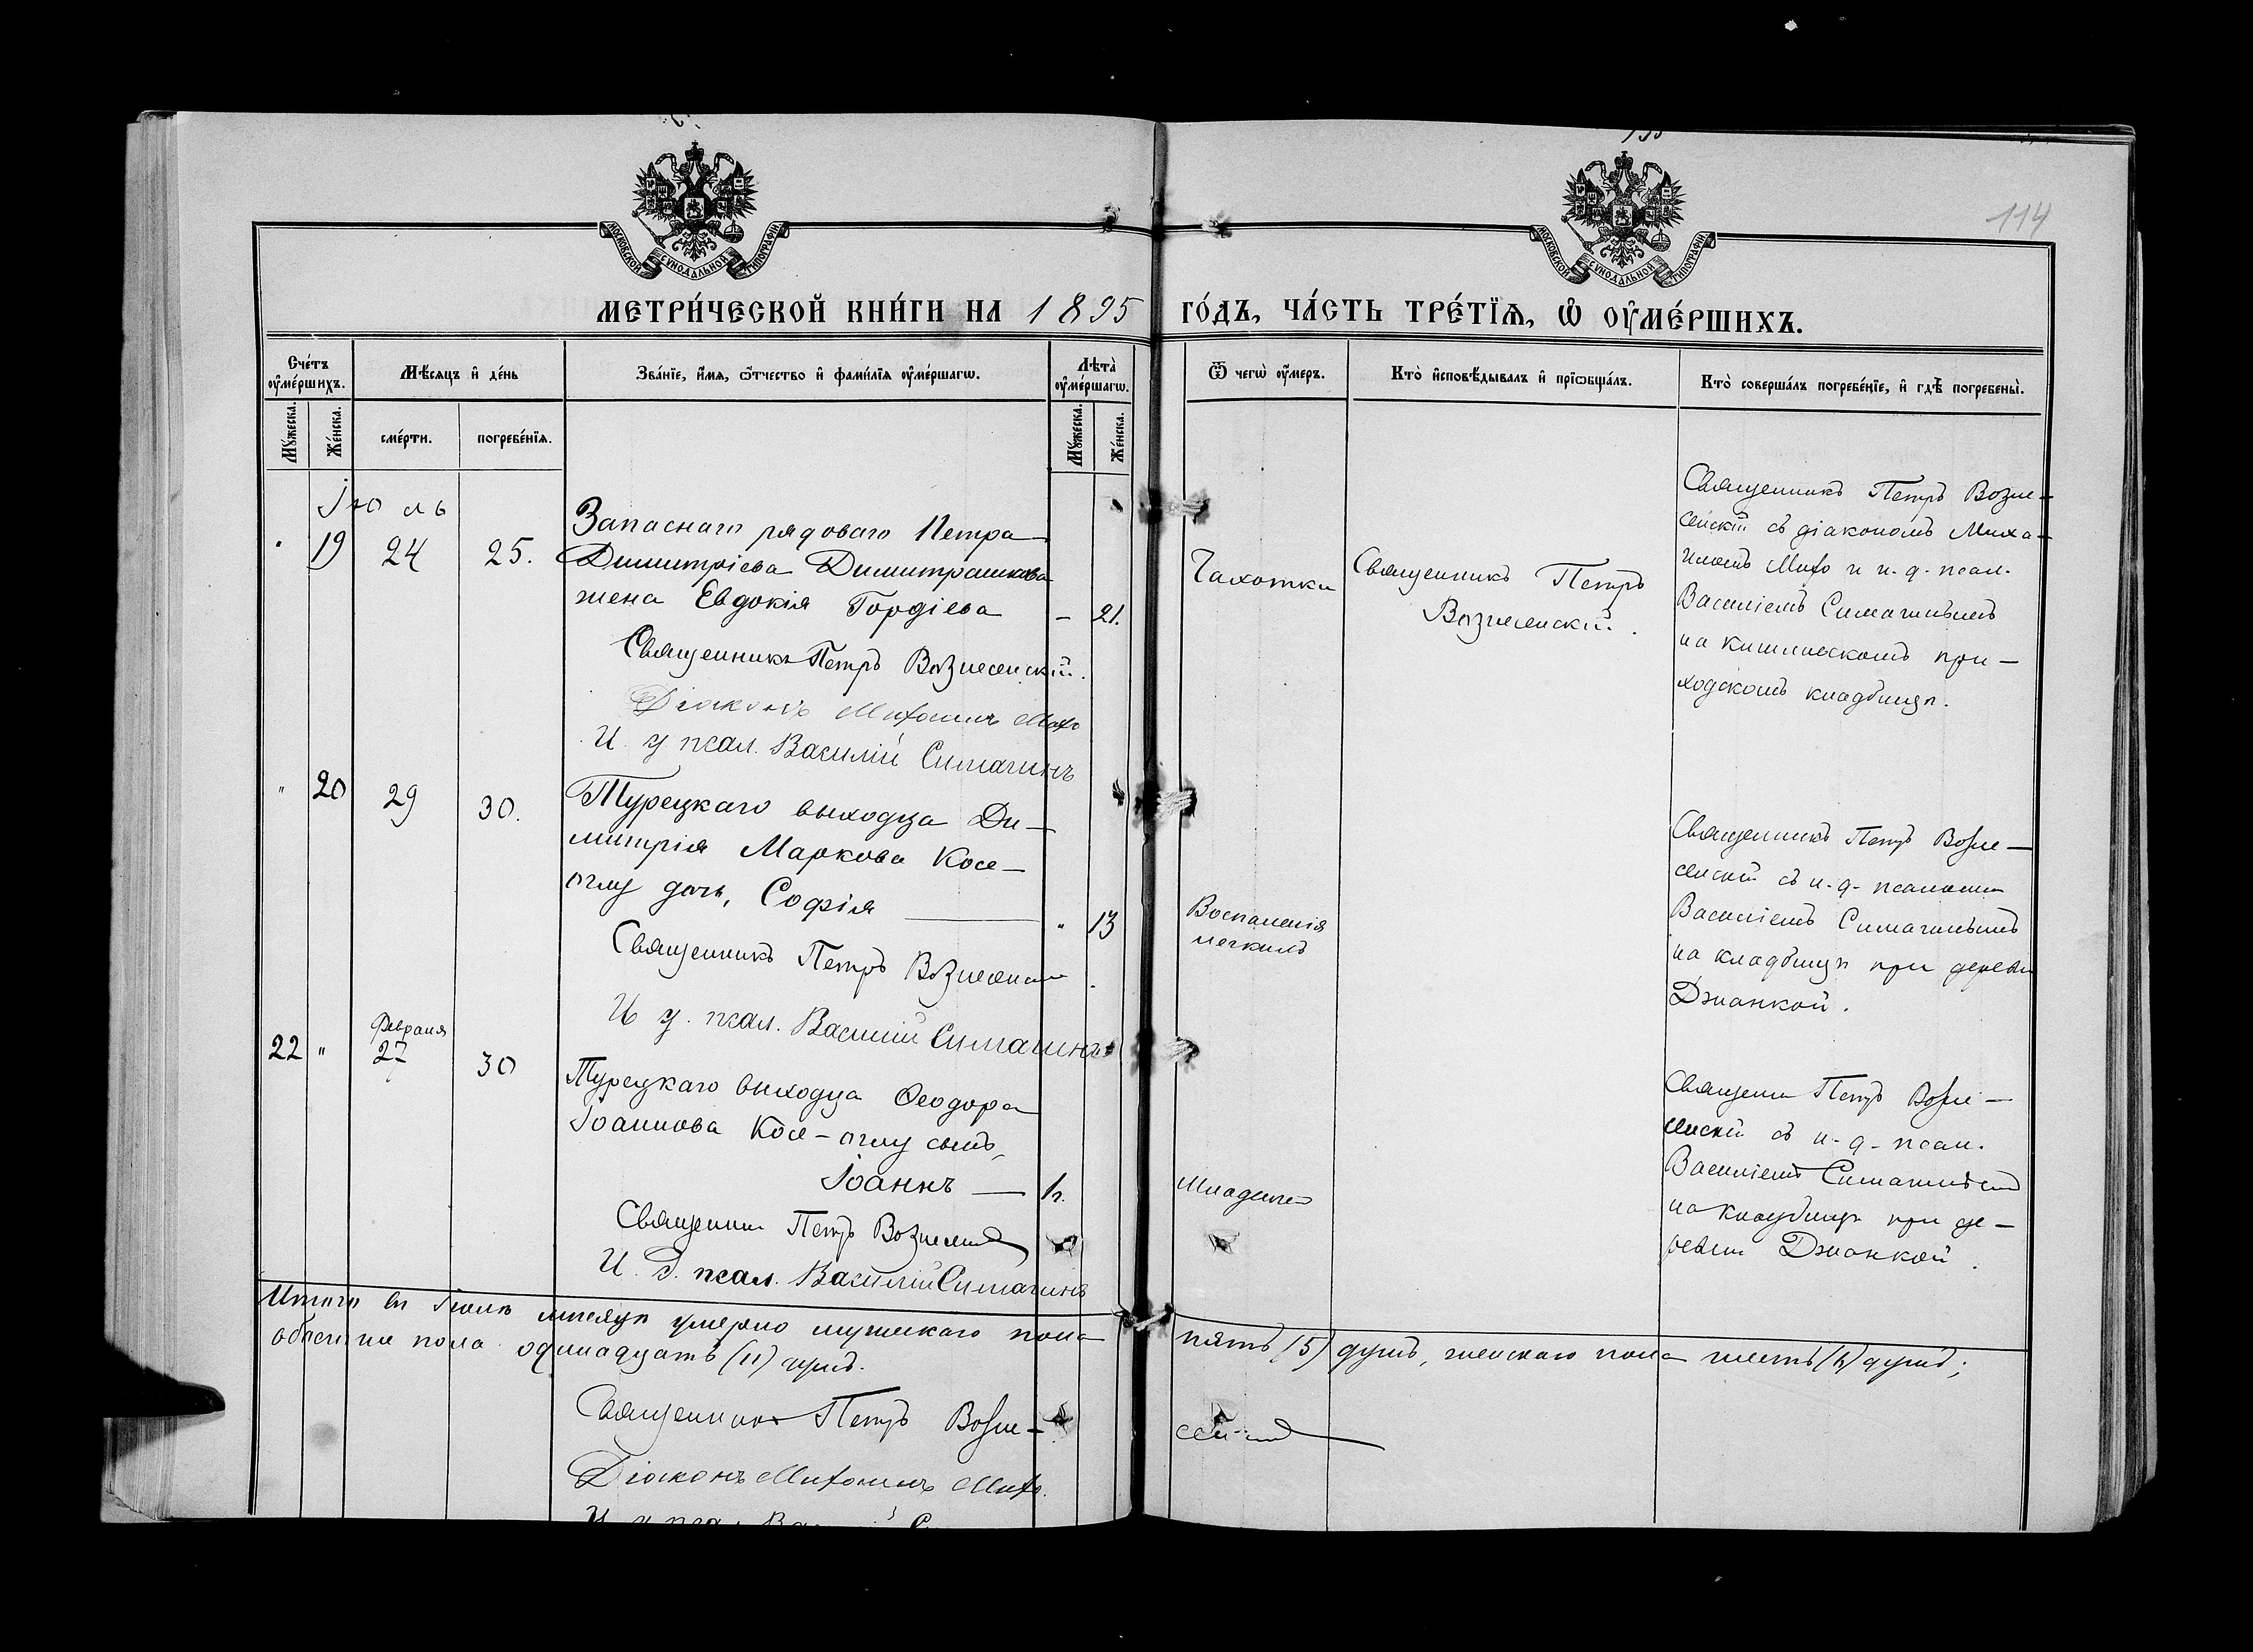 114
МОСКОВСКОЙ СУНОДАЛЬНОЙ ТИПОГРАФІИ
МОСКОВСКОЙ СУНОДАЛЬНОЙ ТИПОГРАФІИ
МЕТРИ́ЧЕСКОЙ КНИ́ГИ НА 1895 ГО́ДЪ, ЧА́СТЬ ТРЕ́ТЇѦ, Ѡ҆ ОУ҆МЕ́РШИХЪ.
Сче́тъ оу҆ме́ршихъ.
Мѣ́сяцъ и҆ де́нь
Зва́нїе, и҆́мѧ, ѻ҆́тчество и҆ фами́лїѧ оу҆ме́ршагѡ.
Лѣ́та оу҆ме́ршагѡ.
Ѿ чегѡ̀ оу҆́меръ.
Кто̀ и҆сповѣ́дывалъ и҆ прїѡбща́лъ.
Кто̀ соверша́лъ погребе́нїе, и҆ гдѣ̀ погребены̀.
Мꙋ́жеска.
Же́нска.
сме́рти.
погребе́нїѧ.
Мꙋ́жеска.
Же́нска.
Іюль
" 19 24 25.
Запаснаго рядоваго Петра
Димитріева Димитрашкова
жена Евдокія Гордіева — 21.
Священникъ Петръ Вознесенскій.
Діаконъ Михаилъ Михо
И. д. псал. Василій Симагинъ
Чахотки
Священникъ Петръ
Вознесенскій.
Священникъ Петръ Возне-
сенскій съ діакономъ Миха-
иломъ Михо и и. д. псал.
Василіемъ Симагинымъ
на приходскомъ кладбищѣ.
" 20 29 30.
Турецкаго выходца Ди-
митрія Маркова Косе-
оглу дочь, Софія " 13
Священникъ Петръ Вознесенскій
И. д. псал. Василій Симагинъ
Воспаленія
легкихъ
Священникъ Петръ Возне-
сенскій съ и. д. псаломщ.
Василіемъ Симагинымъ
на кладбищѣ при деревни
Джанкой.
Февраля
22 " 27 30
Турецкаго выходца Ѳеодора
Іоаннова Косе-оглу сынъ,
Іоаннъ —
Священникъ Петръ Вознесенскій
И. д. псал. Василій Симагинъ
Священникъ Петръ Возне-
сенскій съ и. д. псал.
Василіемъ Симагинымъ
на кладбищѣ при де-
ревни Джанкой.
Итого въ Іюлѣ мѣсяцѣ умерло мужескаго пола пять (5) душъ, женскаго пола шесть (6) душъ;
обоего пола одинадцать (11) душъ.
Священникъ Петръ Возне-
сенскій
Діаконъ Михаилъ Михо.